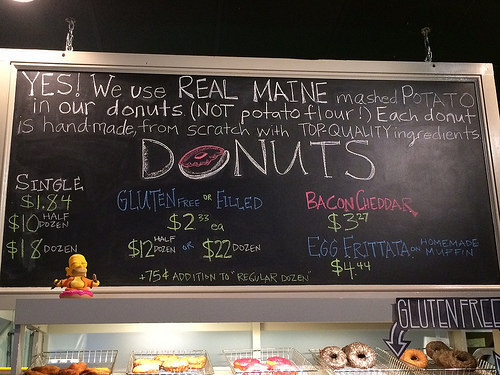 YES! We use REAL MAINE mashed POTATO
in our donuts. (NOT potato flour!) Each donut
is handmade, from scratch with TOP QUALITY ingredients.
DONUTS
SINGLE
$1.84
$10 HALF DOZEN
$18 DOZEN
GLUTEN FREE OR FILLED
$2.33 ea
$12 HALF DOZEN OR $22 DOZEN
+75¢ ADDITION TO "REGULAR DOZEN"
BACON CHEDDAR
$3.27
EGG FRITTATA ON HOMEMADE MUFFIN
$4.44
GLUTEN FREE